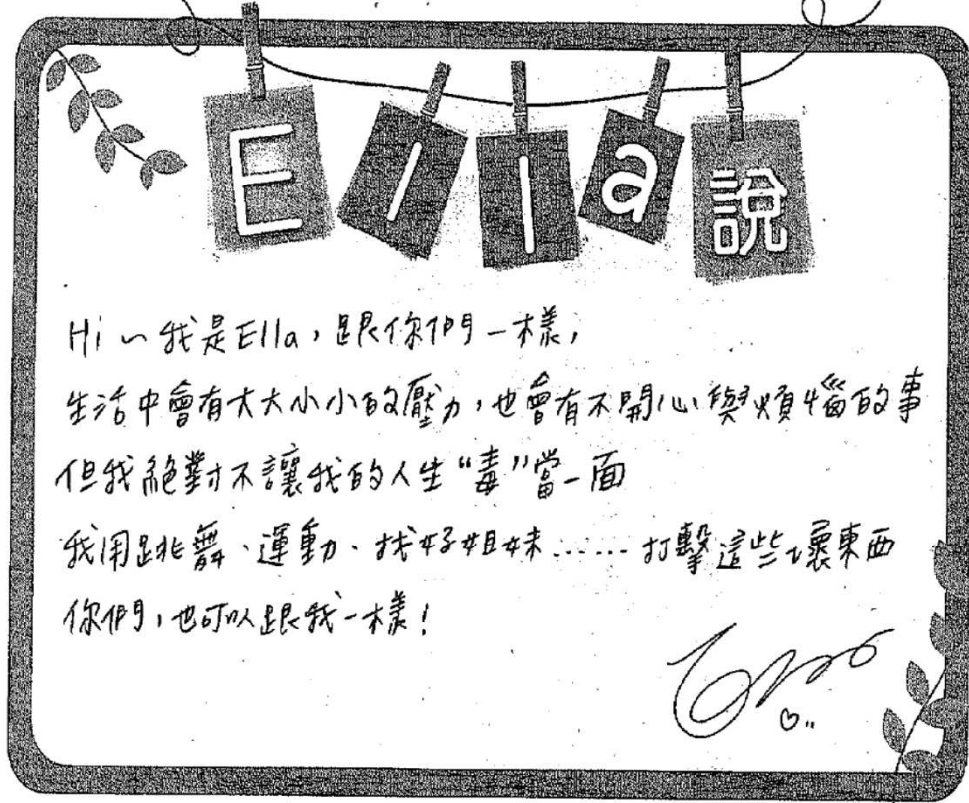 Ella說
Hi～我是Ella，跟你們一樣，
生活中會有大大小小的壓力，也會有不開心與煩惱的事
但我絕對不讓我的人生“毒”當一面
我用跳舞、運動、找好姐妹……打擊這些壞東西
你們，也可以跟我一樣！
Ella